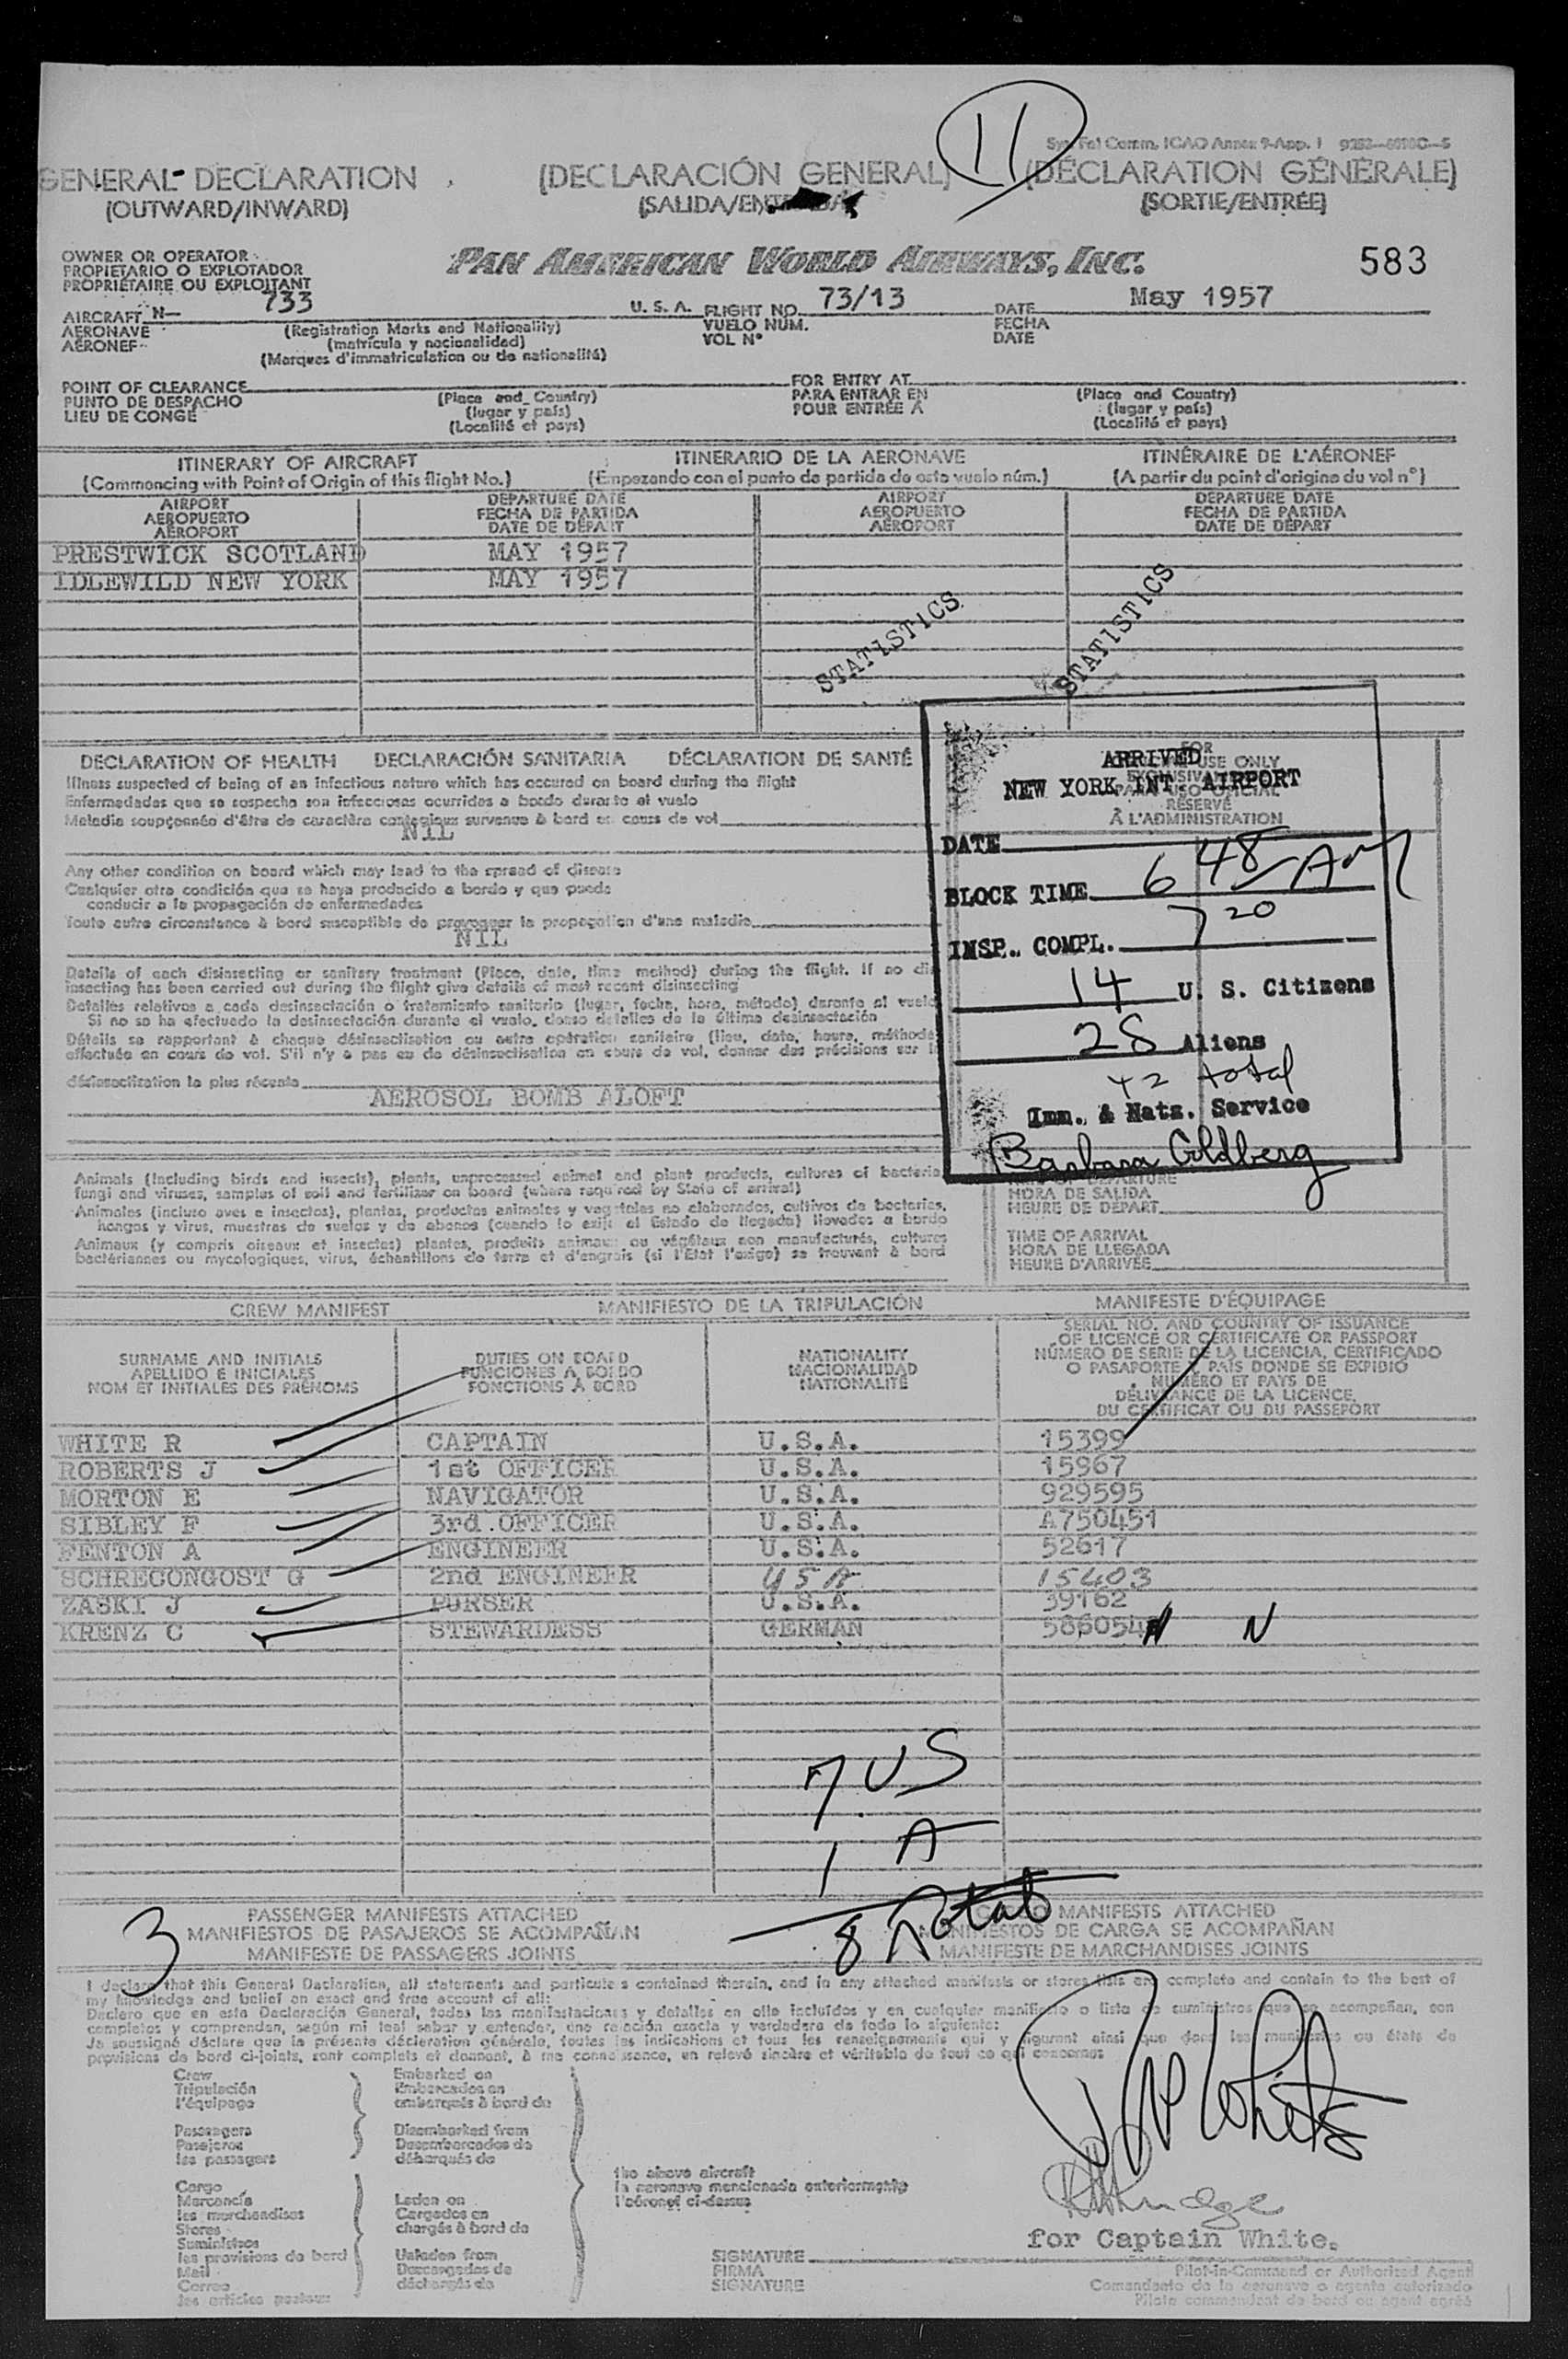 11
GENERAL DECLARATION (DECLARACIÓN GENERAL) (DÉCLARATION GÉNÉRALE)
(OUTWARD/INWARD) (SORTIE/ENTRÉE)
OWNER OR OPERATOR
PROPIETARIO O EXPLOTADOR
PROPRIÉTAIRE OU EXPLOITANT
PAN AMERICAN WORLD AIRWAYS, INC. 583
AIRCRAFT N— 733 U. S. A. FLIGHT NO. 73/13 DATE May 1957
AERONAVE (Registration Marks and Nationality) VUELO NÚM. FECHA
AÉRONEF (matrícula y nacionalidad) VOL N° DATE
(Marques d'immatriculation ou de nationalité)
POINT OF CLEARANCE FOR ENTRY AT
PUNTO DE DESPACHO (Place and Country) PARA ENTRAR EN (Place and Country)
LIEU DE CONGÉ (lugar y país) POUR ENTRÉE À (lugar y país)
(Localité et pays) (Localité et pays)
ITINERARY OF AIRCRAFT ITINERARIO DE LA AERONAVE ITINÉRAIRE DE L'AÉRONEF
(Commencing with Point of Origin of this flight No.) (Empezando con el punto de partida de este vuelo núm.) (A partir du point d'origine du vol n°)
AIRPORT DEPARTURE DATE AIRPORT DEPARTURE DATE
AEROPUERTO FECHA DE PARTIDA AEROPUERTO FECHA DE PARTIDA
AÉROPORT DATE DE DÉPART AÉROPORT DATE DE DÉPART
PRESTWICK SCOTLAND MAY 1957
IDLEWILD NEW YORK MAY 1957
STATISTICS STATISTICS
DECLARATION OF HEALTH DECLARACIÓN SANITARIA DÉCLARATION DE SANTÉ
Illness suspected of being of an infectious nature which has occured on board during the flight
Enfermedades que se sospecha son infecciosas ocurridas a bordo durante el vuelo
Maladie soupçonnée d'être de caractère contagieux survenue à bord en cours de vol
NIL
Any other condition on board which may lead to the spread of disease
Cualquier otra condición que se haya producido a bordo y que pueda
conducir a la propagación de enfermedades
Toute autre circonstance à bord susceptible de provoquer la propagation d'une maladie
NIL
Details of each disinsecting or sanitary treatment (Place, date, time method) during the flight. If no
insecting has been carried out during the flight give details of most recent disinsecting
Detalles relativos a cada desinsectación o tratamiento sanitario (lugar, fecha, hora, método) durante el vuelo
Si no se ha efectuado la desinsectación durante el vuelo, dense detalles de la última desinsectación
Détails se rapportant à chaque désinsectisation ou autre opération sanitaire (lieu, date, heure, méthode
effectuée en cours de vol. S'il n'y a pas eu de désinsectisation en cours de vol, donner des précisions sur
désinsectisation la plus récente
AEROSOL BOMB ALOFT
ARRIVED
NEW YORK INT. AIRPORT
FOR
USE ONLY
RÉSERVÉ
À L'ADMINISTRATION
DATE
BLOCK TIME 6 48 AM
INSP. COMPL. 7 20
14 U. S. Citizens
28 Aliens
42 total
Imm. & Natz. Service
Barbara Goldberg
Animals (including birds and insects), plants, unprocessed animal and plant products, cultures of bacteria
fungi and viruses, samples of soil and fertilizer on board (where required by State of arrival)
Animales (incluso aves e insectos), plantas, productos animales y vegetales no elaborados, cultivos de bacterias,
hongos y virus, muestras de suelos y de abonos (cuando lo exija el Estado de llegada) llevados a bordo
Animaux (y compris oiseaux et insectes) plantes, produits animaux ou végétaux non manufacturés, cultures
bactériennes ou mycologiques, virus, échantillons de terre et d'engrais (si l'État l'exige) se trouvant à bord
HORA DE SALIDA
HEURE DE DÉPART
TIME OF ARRIVAL
HORA DE LLEGADA
HEURE D'ARRIVÉE
CREW MANIFEST MANIFIESTO DE LA TRIPULACIÓN MANIFESTE D'ÉQUIPAGE
SURNAME AND INITIALS
APELLIDO E INICIALES
NOM ET INITIALES DES PRÉNOMS
DUTIES ON BOARD
FUNCIONES A BORDO
FONCTIONS À BORD
NATIONALITY
NACIONALIDAD
NATIONALITÉ
SERIAL NO. AND COUNTRY OF ISSUANCE
OF LICENCE OR CERTIFICATE OR PASSPORT
NÚMERO DE SERIE DE LA LICENCIA, CERTIFICADO
O PASAPORTE Y PAÍS DONDE SE EXPIDIÓ
NUMÉRO ET PAYS DE
DÉLIVRANCE DE LA LICENCE,
DU CERTIFICAT OU DU PASSEPORT
WHITE R CAPTAIN U.S.A. 15399
ROBERTS J 1st OFFICER U.S.A. 15967
MORTON E NAVIGATOR U.S.A. 929595
SIBLEY F 3rd OFFICER U.S.A. A750451
FENTON A ENGINEER U.S.A. 52617
SCHRECONGOST G 2nd ENGINEER USA 15403
ZASKI J PURSER U.S.A. 39162
KRENZ C STEWARDESS GERMAN N
7 US
1 A
8 Total
3
PASSENGER MANIFESTS ATTACHED
MANIFIESTOS DE PASAJEROS SE ACOMPAÑAN
MANIFESTE DE PASSAGERS JOINTS
MANIFESTS ATTACHED
MANIFIESTOS DE CARGA SE ACOMPAÑAN
MANIFESTE DE MARCHANDISES JOINTS
I declare that this General Declaration, all statements and particulars contained therein, and in any attached manifests or stores lists are complete and contain to the best of
my knowledge and belief an exact and true account of all:
Declaro que en esta Declaración General, todas las manifestaciones y detalles en ella incluídos y en cualquier manifiesto o lista de suministros que se acompañan, son
completos y comprenden, según mi leal saber y entender, una relación exacta y verdadera de todo lo siguiente:
Je soussigné déclare que la présente déclaration générale, toutes les indications et tous les renseignements qui y figurent ainsi que dans les manifestes ou états de
provisions de bord ci-joints, sont complets et donnent, à ma connaissance, un relevé sincère et véritable de tout ce qui concerne:
Crew Embarked on
Tripulación Embarcados en
l'équipage embarqués à bord de
Passengers Disembarked from
Pasajeros Desembarcados de
les passagers débarqués de
the above aircraft
la aeronave mencionada anteriormente
l'aéronef ci-dessus
Cargo
Mercancía Laden on
les marchandises Cargados en
Stores chargés à bord de
Suministros
les provisions de bord Unladen from
Mail Descargados de
Correo déchargés de
les articles postaux
White
for Captain White.
SIGNATURE
FIRMA
SIGNATURE
Pilot-in-Command or Authorized Agent
Comandante de la aeronave o agente autorizado
Pilote commandant de bord ou agent agréé